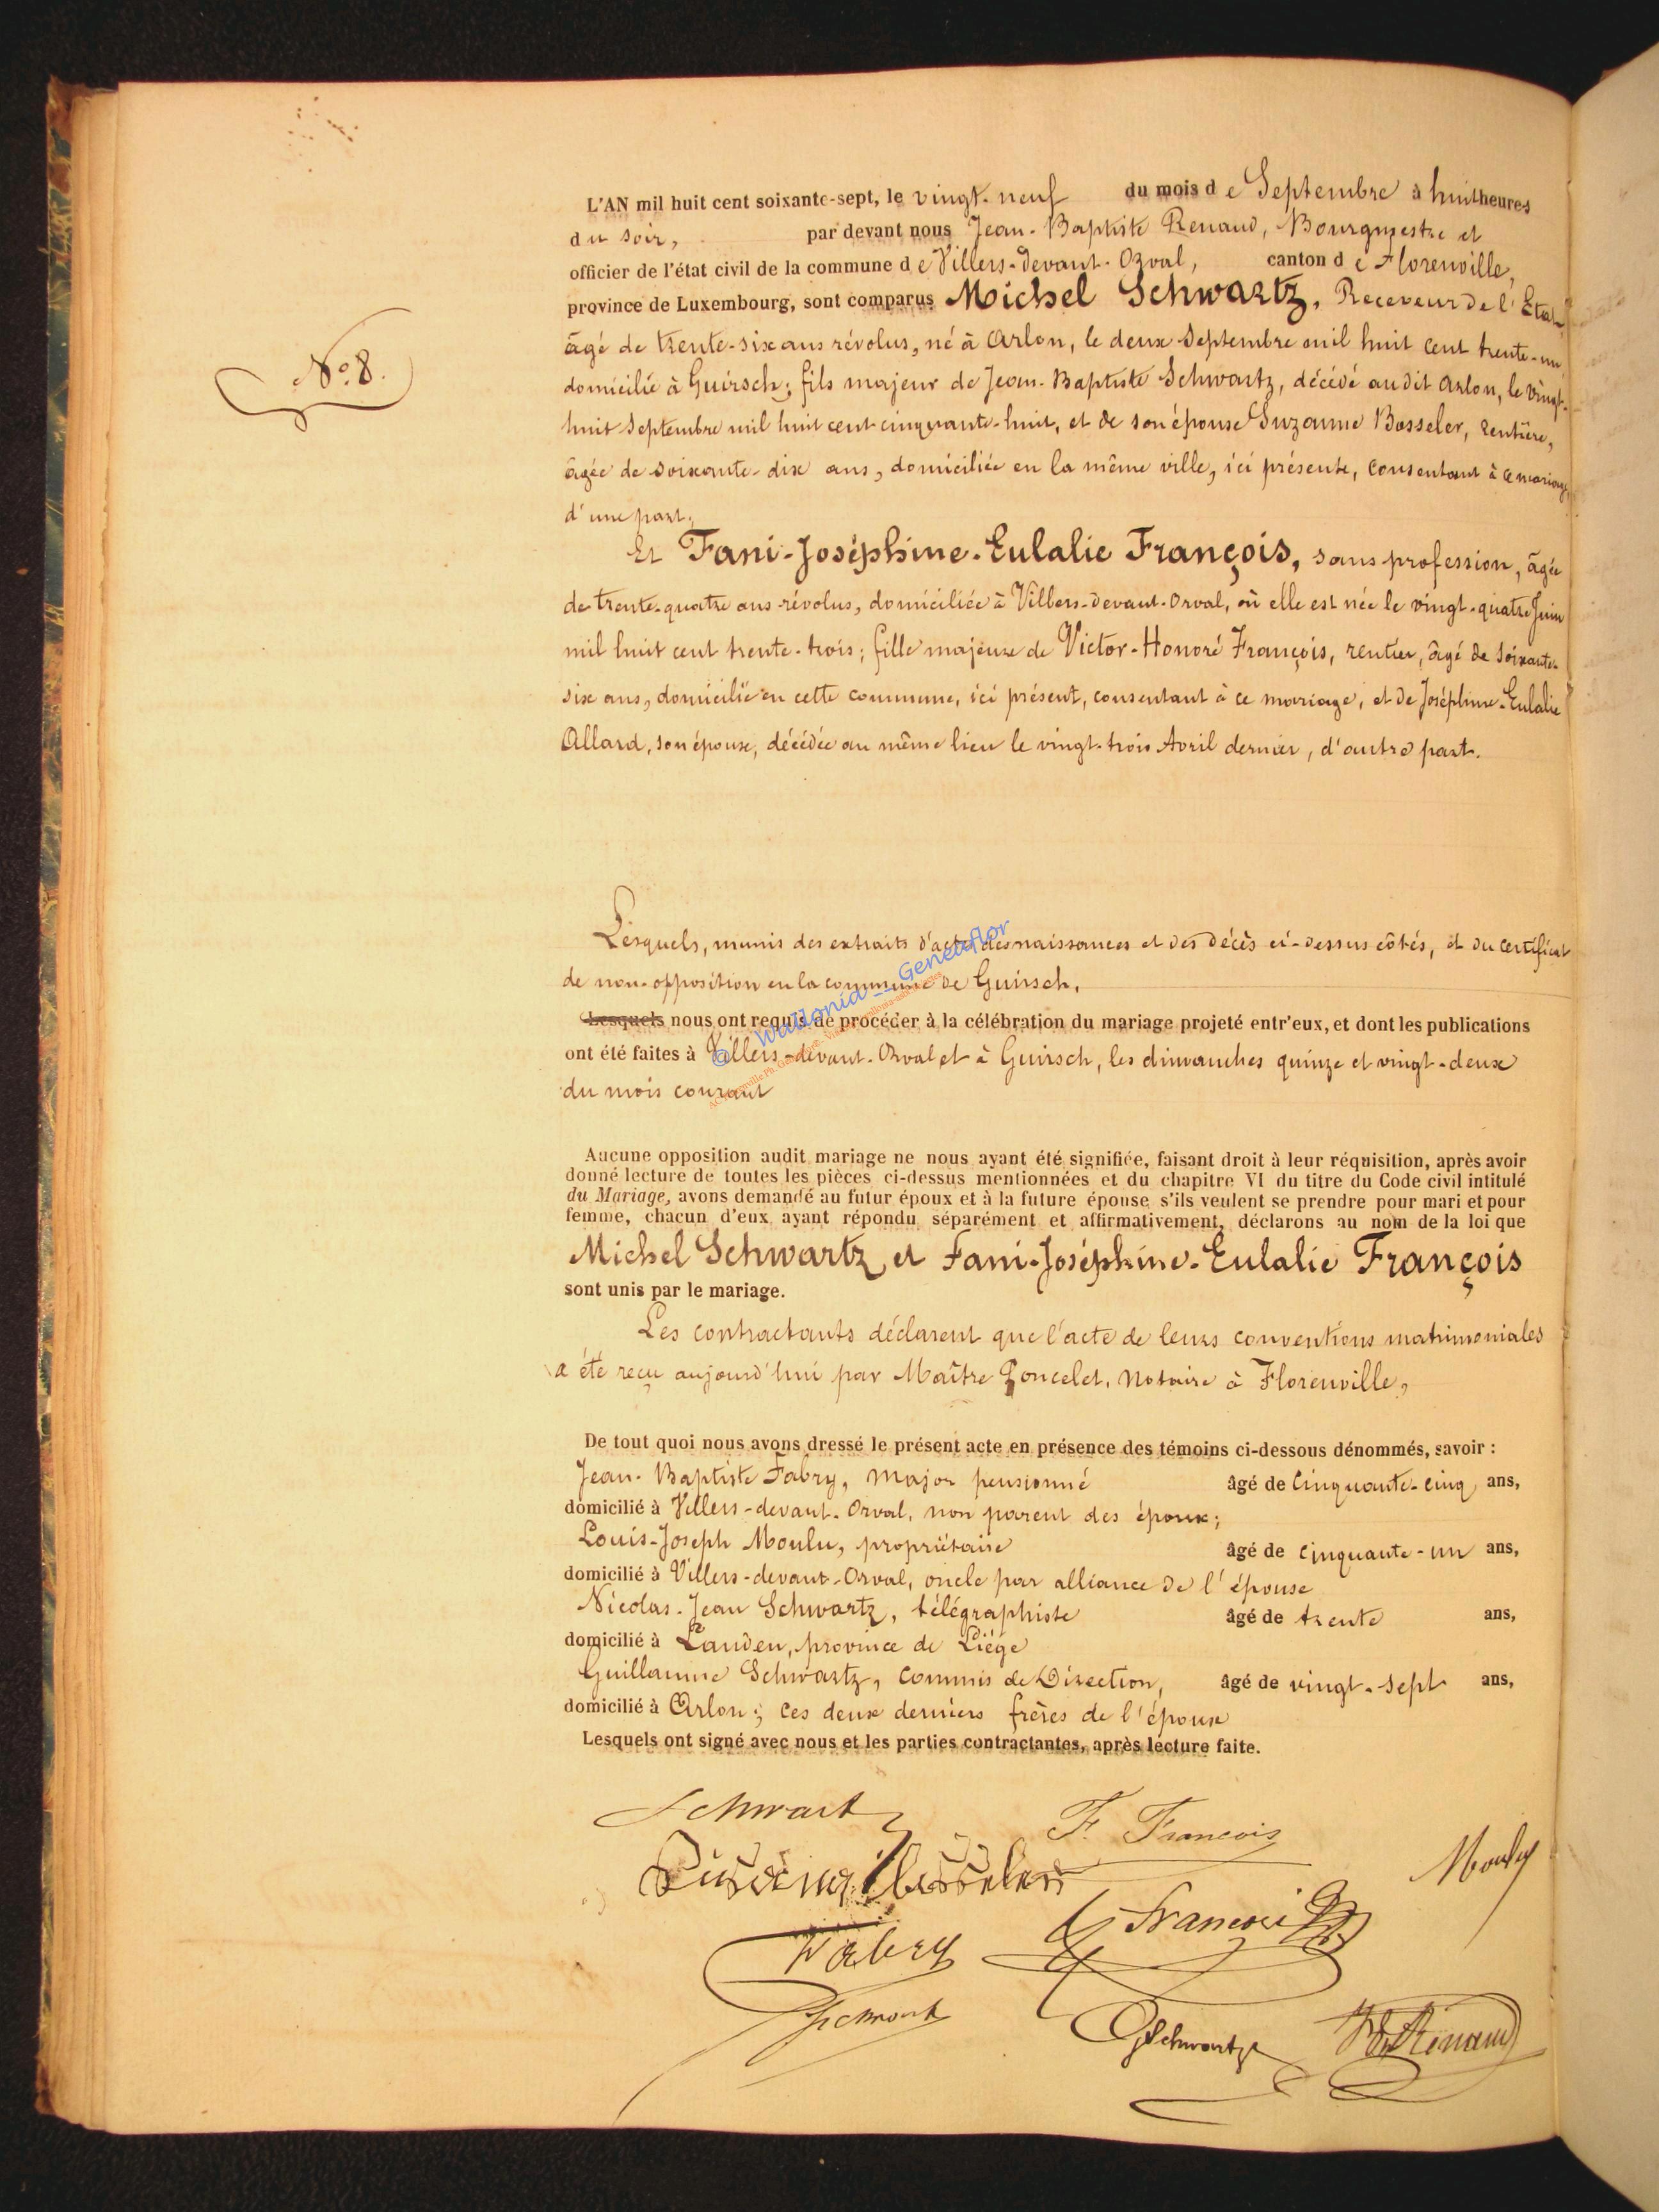 L'AN mil huit cent soixante-sept, le vingt-neuf du mois de Septembre à huit heures
du soir, par devant nous Jean-Baptiste Renaud, Bourgmestre et
officier de l'état civil de la commune de Villers-devant-Orval, canton de Florenville,
province de Luxembourg, sont comparus Michel Schwartz, Receveur de l'Etat,
âgé de trente-six ans révolus, né à Arlon, le deux Septembre mil huit cent trente-un,
domicilié à Guirsch; fils majeur de Jean-Baptiste Schwartz, décédé audit Arlon, le vingt-
huit Septembre mil huit cent cinquante-huit, et de son épouse Suzanne Bosseler, rentière,
âgée de soixante-dix ans, domiciliée en la même ville, ici présente, consentant à ce mariage,
d'une part;
Et Fani-Joséphine-Eulalie François, sans profession, âgée
de trente-quatre ans révolus, domiciliée à Villers-devant-Orval, où elle est née le vingt-quatre Juin
mil huit cent trente-trois; fille majeure de Victor-Honoré François, rentier, âgé de soixante-
six ans, domicilié en cette commune, ici présent, consentant à ce mariage, et de Joséphine-Eulalie
Allard, son épouse, décédée au même lieu le vingt-trois Avril dernier, d'autre part.
N° 8.
Lesquels, munis des extraits d'actes des naissances et des décès ci-dessus côtés, et du certificat
de non-opposition en la commune de Guirsch,
© Wallonia - Geneaflor
Lesquels nous ont requis de procéder à la célébration du mariage projeté entr'eux, et dont les publications
ont été faites à Villers-devant-Orval et à Guirsch, les dimanches quinze et vingt-deux
du mois courant
Aucune opposition audit mariage ne nous ayant été signifiée, faisant droit à leur réquisition, après avoir
donné lecture de toutes les pièces ci-dessus mentionnées et du chapitre VI du titre du Code civil intitulé
du Mariage, avons demandé au futur époux et à la future épouse s'ils veulent se prendre pour mari et pour
femme, chacun d'eux ayant répondu séparément et affirmativement, déclarons au nom de la loi que
Michel Schwartz et Fani-Joséphine-Eulalie François
sont unis par le mariage.
Les contractants déclarent que l'acte de leurs conventions matrimoniales
a été reçu aujourd'hui par Maître Poncelet, Notaire à Florenville,
De tout quoi nous avons dressé le présent acte en présence des témoins ci-dessous dénommés, savoir :
Jean-Baptiste Fabry, Major pensionné âgé de cinquante-cinq ans,
domicilié à Villers-devant-Orval, non parent des époux;
Louis-Joseph Moulu, propriétaire âgé de cinquante-un ans,
domicilié à Villers-devant-Orval, oncle par alliance de l'épouse
Nicolas-Jean Schwartz, télégraphiste âgé de trente ans,
domicilié à Landen, province de Liége
Guillaume Schwartz, commis de Direction, âgé de vingt-sept ans,
domicilié à Arlon; ces deux derniers frères de l'époux
Lesquels ont signé avec nous et les parties contractantes, après lecture faite.
Schwartz
F. François
Moulu
François
Fabry
Schwartz
GSchwartz
Renaud